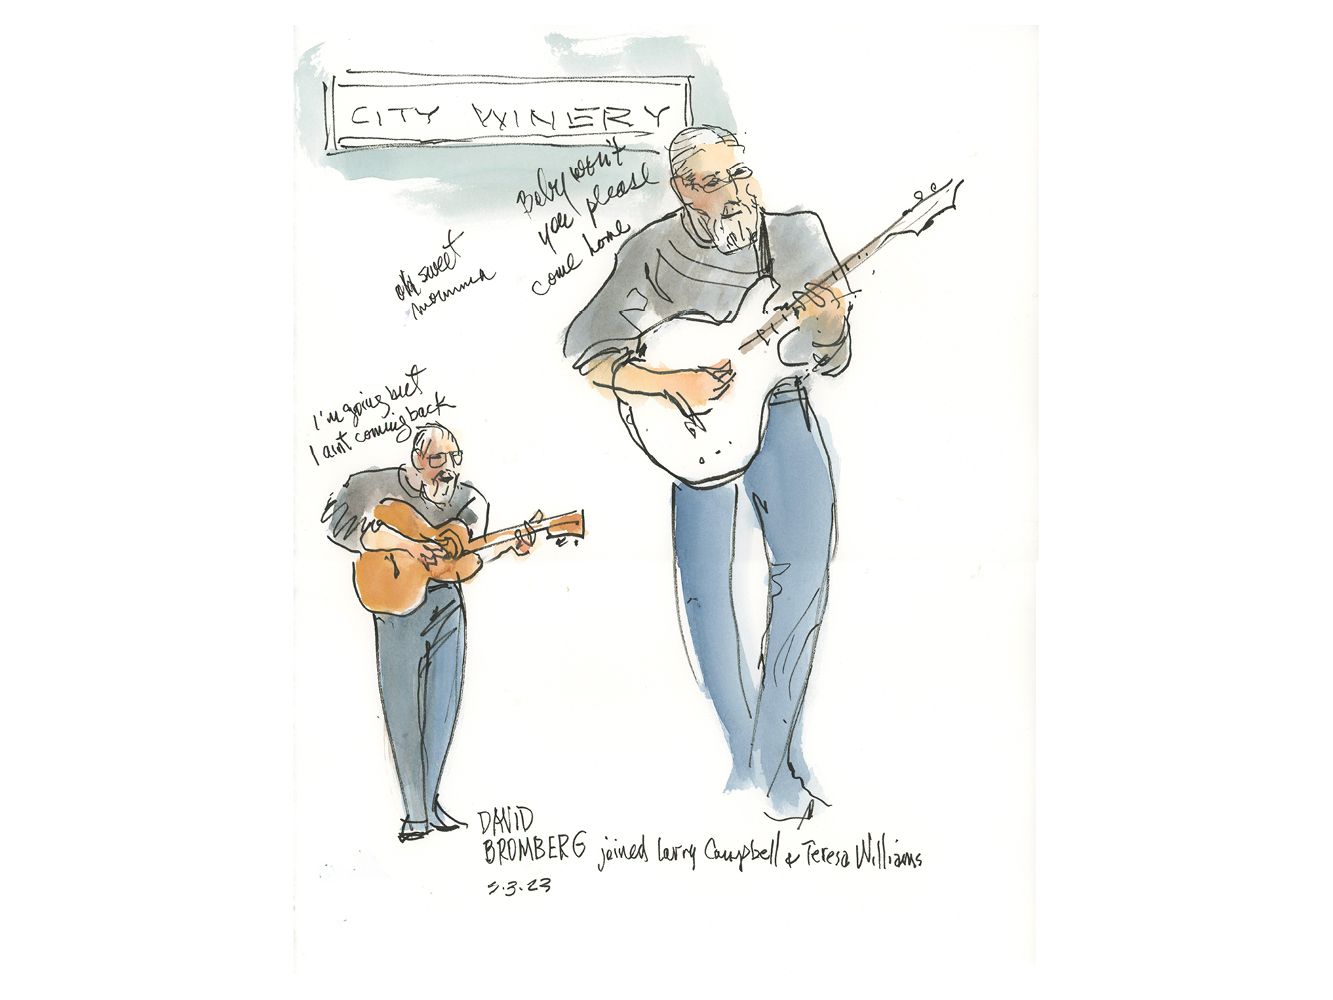 CITY WINERY
Baby won't
you please
come home
oh sweet
momma
I'm going but
I aint coming back
DAVID
BROMBERG joined Larry Campbell & Teresa Williams
5.3.23